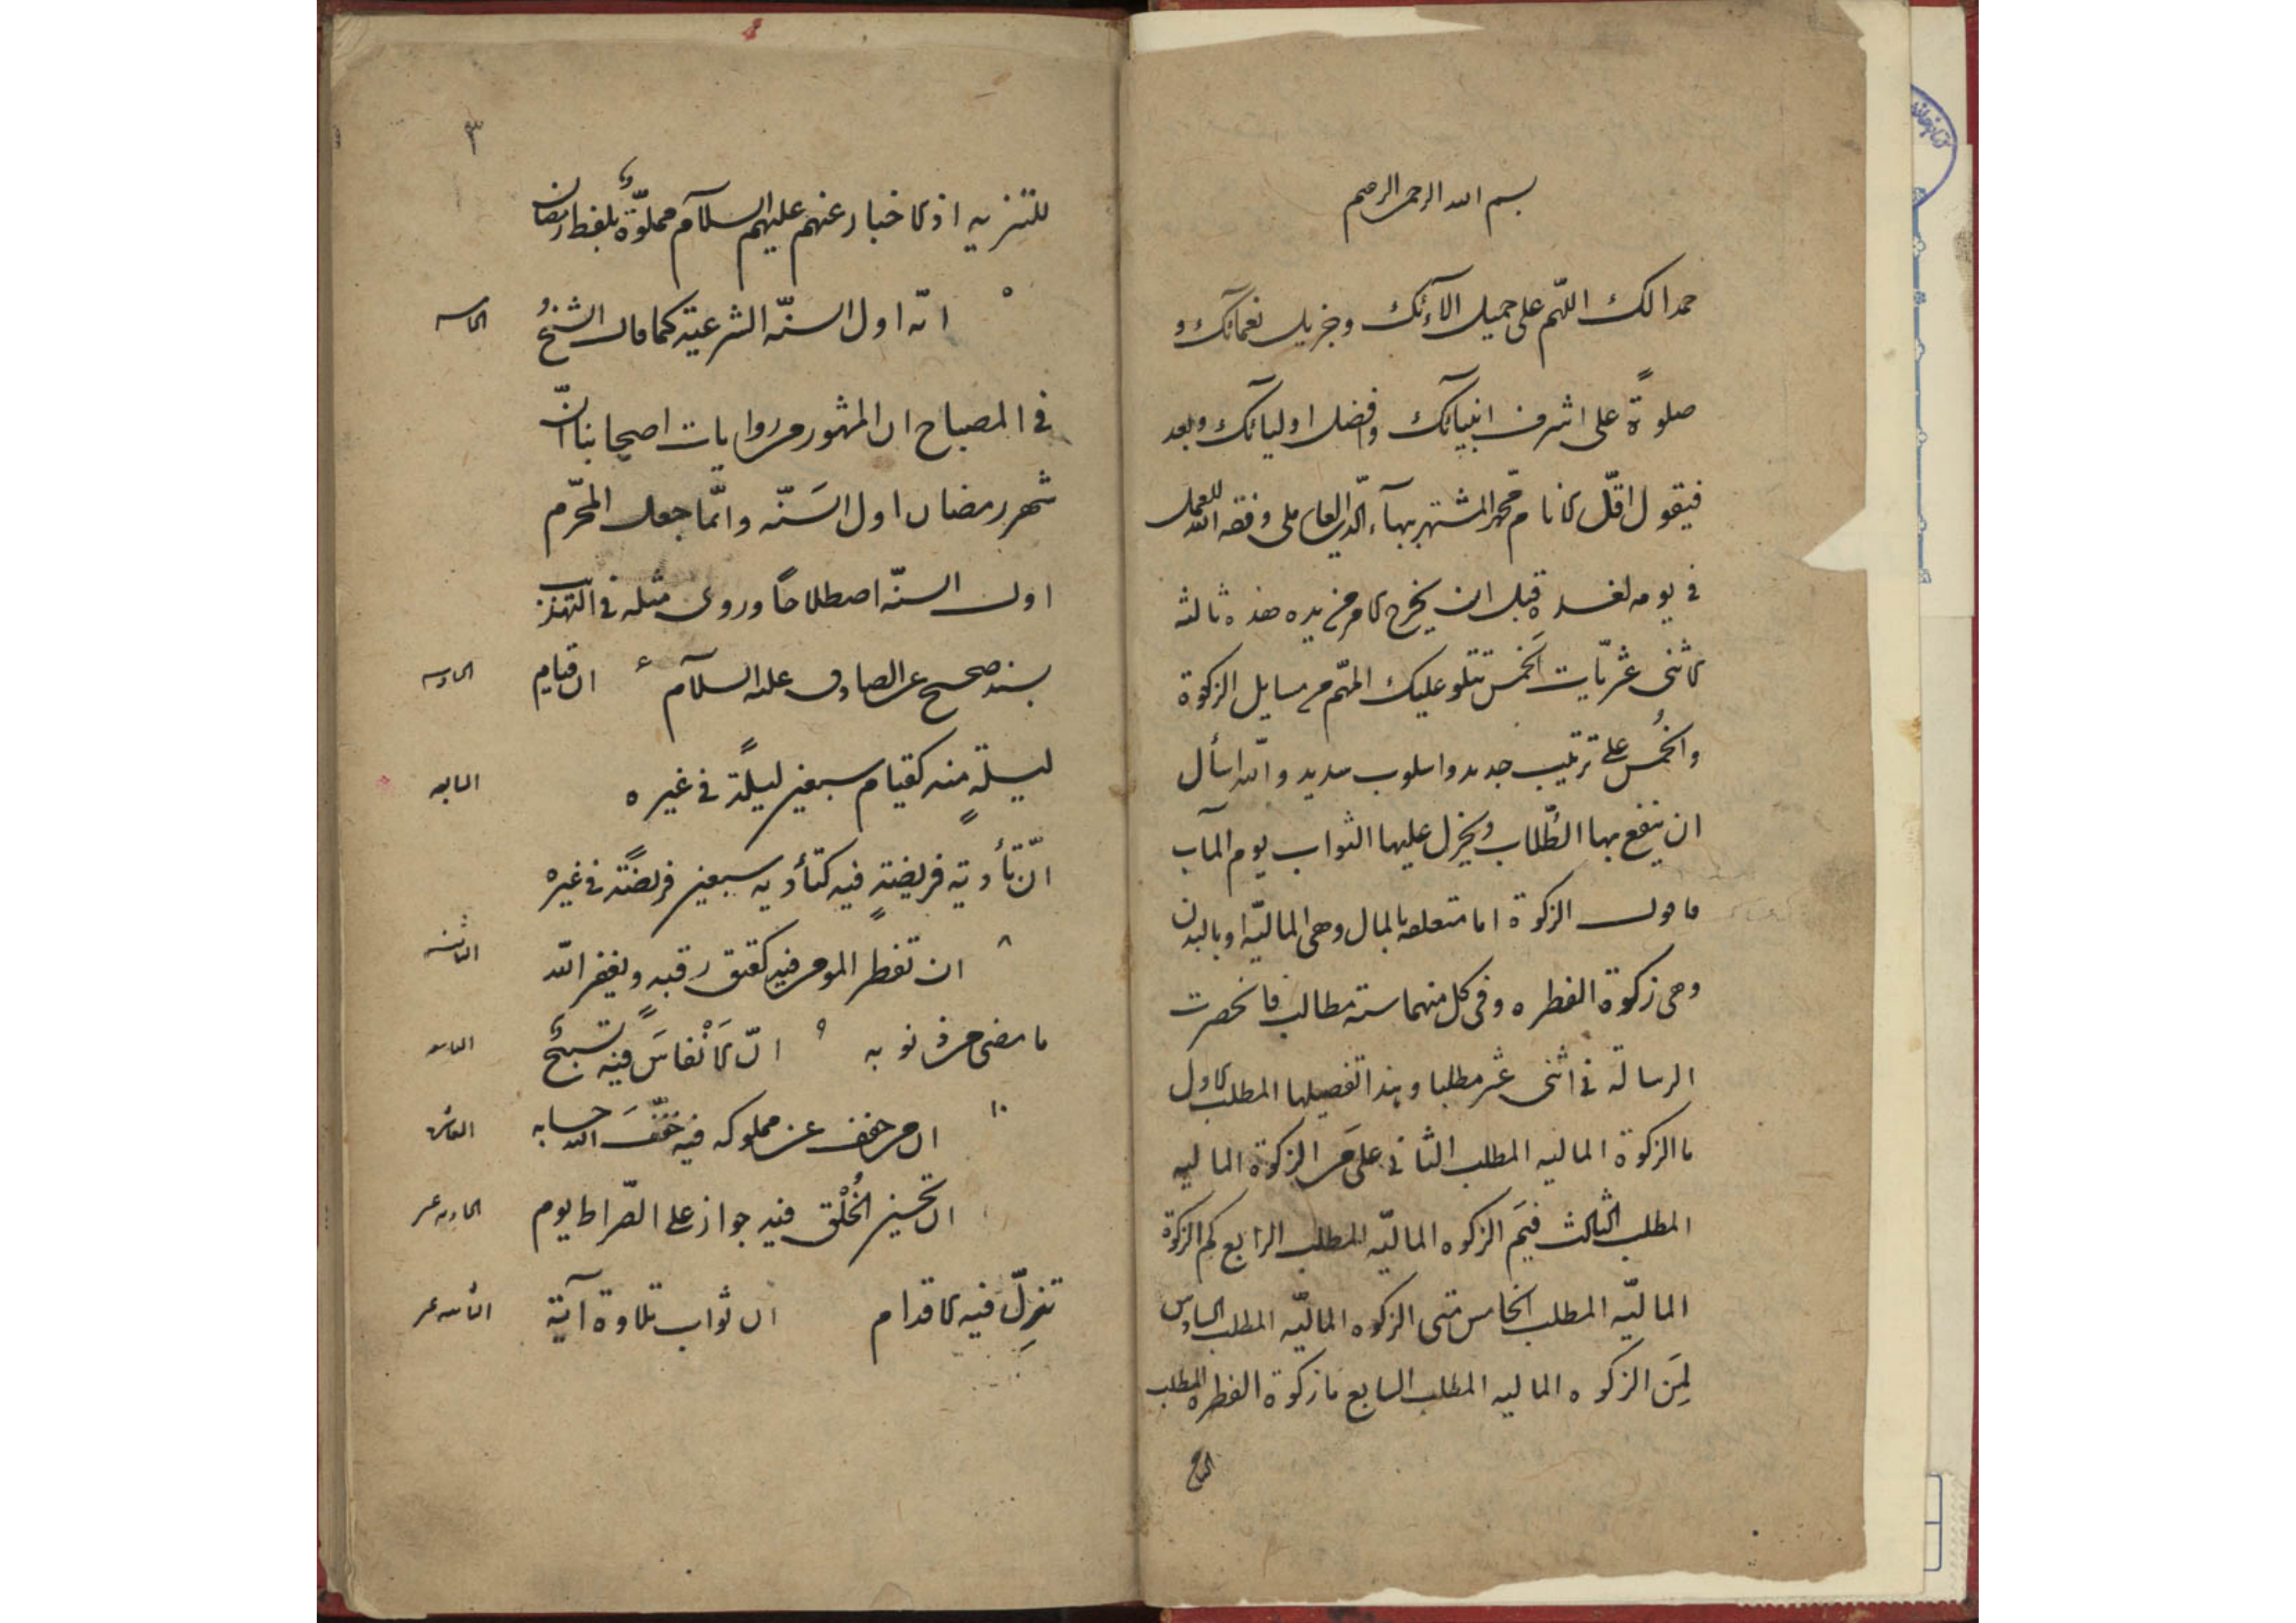 بسم الله الرحمن الرحيم
حمدا لك اللهّم على جميل الآءئك وجزيل نعمآئك و
صلوةً على اشرف انبيائك وافضل اوليائك وبعد
فيقول اقلّ الانام محمّد المشتهر ببهآء الدّين العاملى وفقه الله للعمل
فى يومه لغده قبل ان يخرج الامر من يده هذه ثالثة
الاثنى عشريّات الخمس تتلو عليك المهّم من مسايل الزكوة
والخُمس على ترتيب جديد واسلوب سديد والله اسأل
ان ينفع بها الطّلاب ويجزل عليها الثواب يوم المآب
فاقول الزكوة اما متعلقه بالمال وهى الماليّة او بالبدن
وهى زكوة الفطره وفى كل منهما ستة مطالب فانحصرت
الرسالة فى اثنى عشر مطلبا وهذا تفصيلها المطلب الاول
ما الزكوة الماليه المطلب الثانى على مَن الزكوة الماليه
المطلب الثالث فيمَ الزكوه الماليّه المطلب الرابع كم الزكوة
الماليّه المطلب الخامس متى الزكوه الماليّه المطلب السادس
لِمَن الزكوه الماليه المطلب السابع ما زكوة الفطره المطلب
الثامن
٣
للتنزيه اذ الاخبار عنهم عليهم السلآم مملوّة بلفظ رمضان
٥ انّه اول السنّه الشرعيّة كما قال الشيخُ
الخامسه
فى المصباح ان المشهور من روايات اصحابنا انّ
شهر رمضان اول السَنّه وانّما جعل المحرّم
اول السنّه اصطلاحًا وروى مثله فى التهذيب
بسند صحيح عن الصادق عليه السلآم ان قيام
السادسه
ليلةٍ منه كقيام سبعين ليلًة فى غيره
السابعه
انّ تأدية فريضةٍ فيه كتأديه سبعين فريضًة فى غيره
٨ ان تفطير المومن فيه كعتق رقبه ويغفر الله
الثامنه
ما مضى من ذنوبه ٩ انّ الانْفاسَ فيه تسبيحٌ
التاسعه
١٠ ان من خفف عن مملوكه فيه خفّفَ الله حسابه
العاشره
ان تحسين الخُلْق فيه جواز على الصّراط يوم
الحاديه عشر
تزِلّ فيه الاقدام ان ثواب تلاوة آية
الثانيه عشر